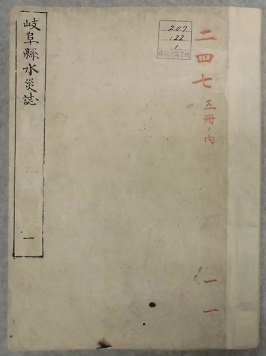 岐阜縣水災誌
一
207
122
1
二四七
五冊ノ内
一一